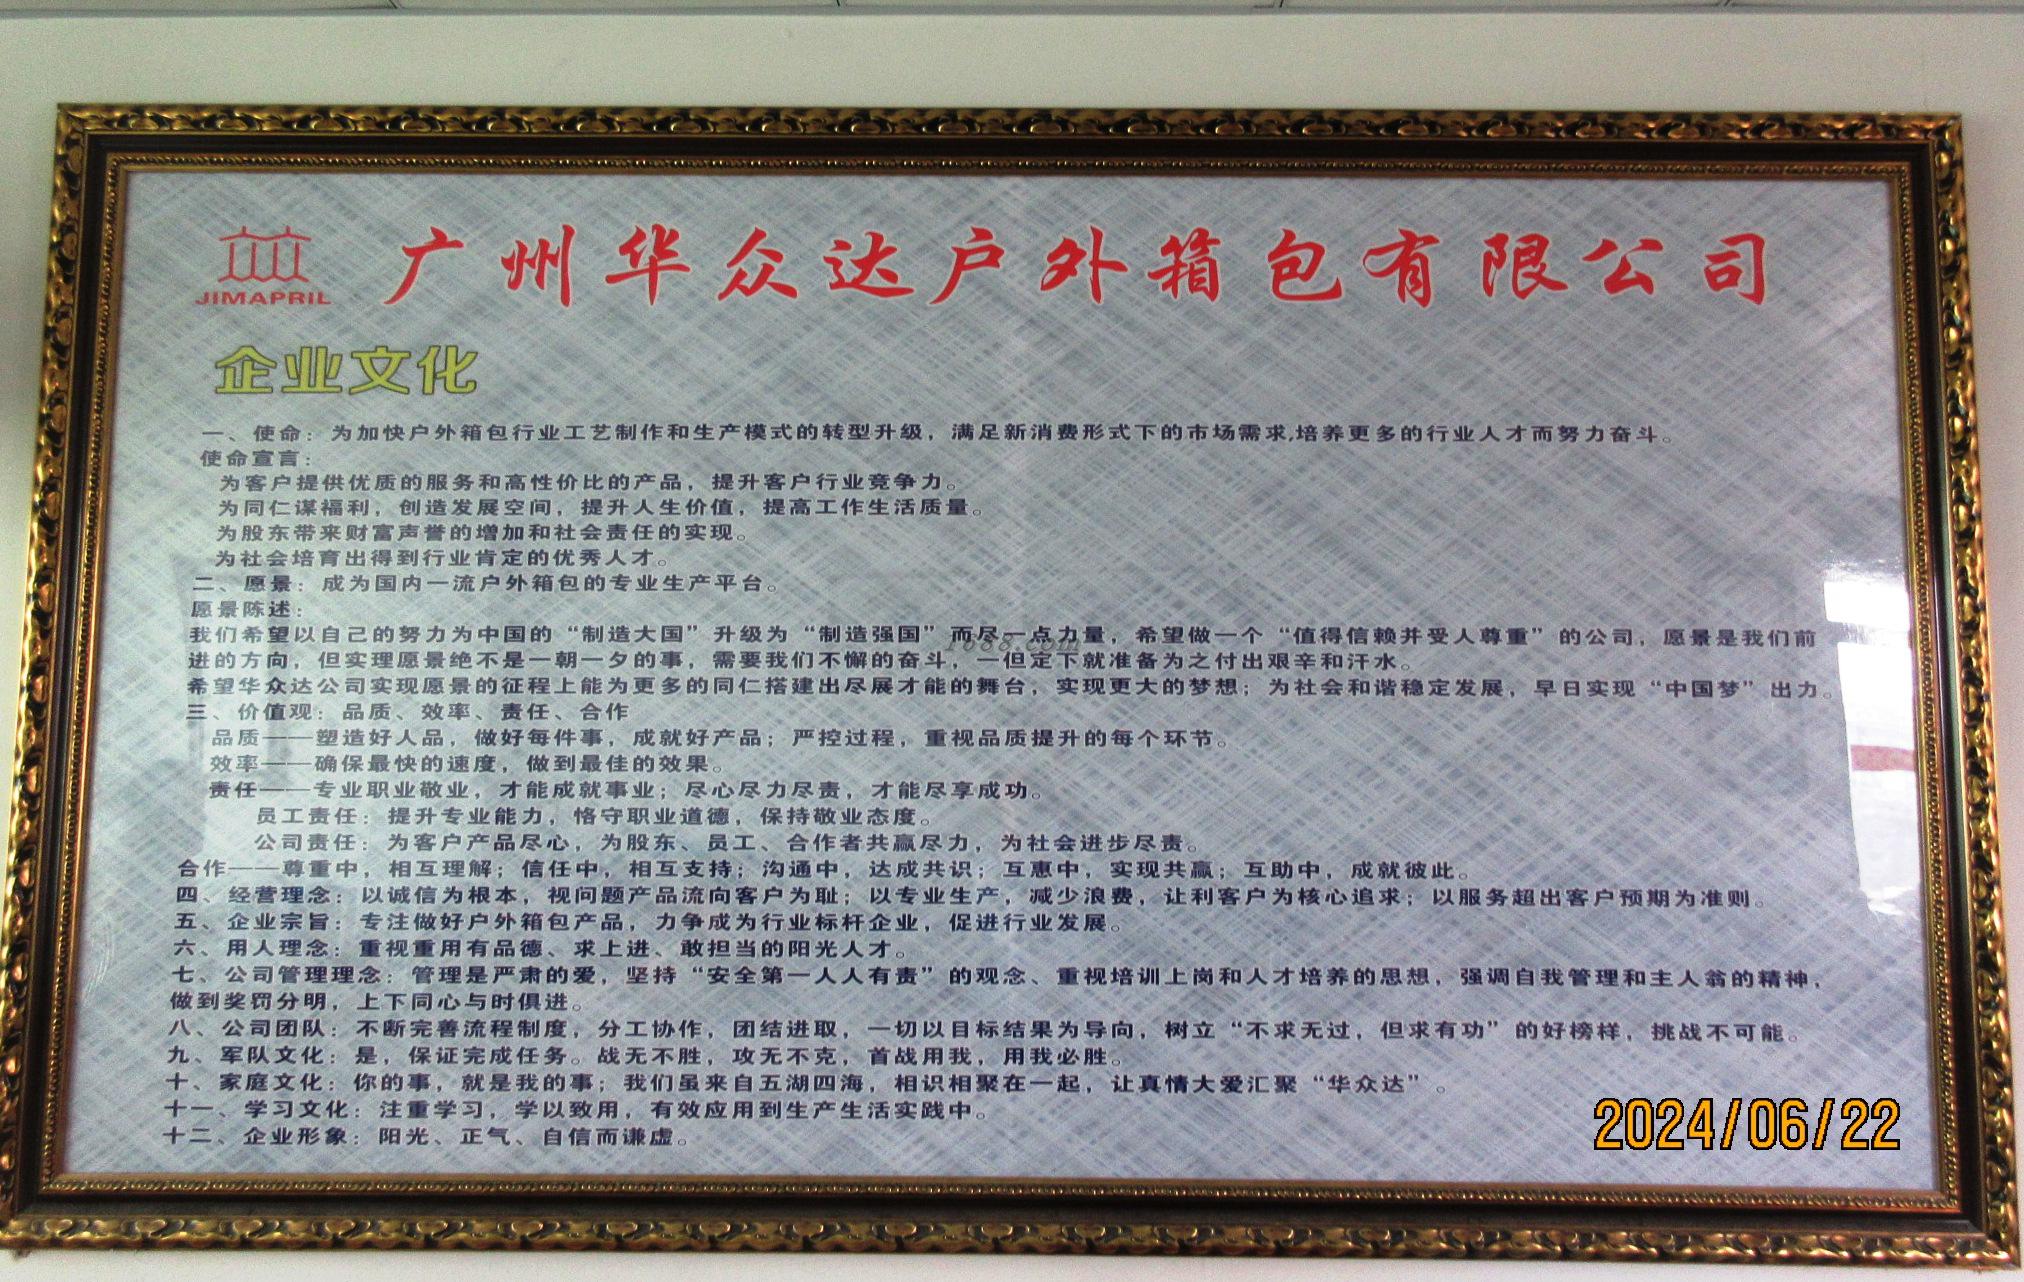 JIMAPRIL
广州华众达户外箱包有限公司
企业文化
一、使命：为加快户外箱包行业工艺制作和生产模式的转型升级，满足新消费形式下的市场需求,培养更多的行业人才而努力奋斗。
使命宣言：
为客户提供优质的服务和高性价比的产品，提升客户行业竞争力。
为同仁谋福利，创造发展空间，提升人生价值，提高工作生活质量。
为股东带来财富声誉的增加和社会责任的实现。
为社会培育出得到行业肯定的优秀人才。
二、愿景：成为国内一流户外箱包的专业生产平台。
愿景陈述：
我们希望以自己的努力为中国的“制造大国”升级为“制造强国”而尽一点力量，希望做一个“值得信赖并受人尊重”的公司，愿景是我们前
进的方向，但实理愿景绝不是一朝一夕的事，需要我们不懈的奋斗，一但定下就准备为之付出艰辛和汗水。
希望华众达公司实现愿景的征程上能为更多的同仁搭建出尽展才能的舞台，实现更大的梦想；为社会和谐稳定发展，早日实现“中国梦”出力。
三、价值观：品质、效率、责任、合作
品质——塑造好人品，做好每件事，成就好产品；严控过程，重视品质提升的每个环节。
效率——确保最快的速度，做到最佳的效果。
责任——专业职业敬业，才能成就事业；尽心尽力尽责，才能尽享成功。
员工责任：提升专业能力，恪守职业道德，保持敬业态度。
公司责任：为客户产品尽心，为股东、员工、合作者共赢尽力，为社会进步尽责。
合作——尊重中，相互理解；信任中，相互支持；沟通中，达成共识；互惠中，实现共赢；互助中，成就彼此。
四、经营理念：以诚信为根本，视问题产品流向客户为耻；以专业生产，减少浪费，让利客户为核心追求；以服务超出客户预期为准则。
五、企业宗旨：专注做好户外箱包产品，力争成为行业标杆企业，促进行业发展。
六、用人理念：重视重用有品德、求上进、敢担当的阳光人才。
七、公司管理理念：管理是严肃的爱，坚持“安全第一人人有责”的观念、重视培训上岗和人才培养的思想，强调自我管理和主人翁的精神，
做到奖罚分明，上下同心与时俱进。
八、公司团队：不断完善流程制度，分工协作，团结进取，一切以目标结果为导向，树立“不求无过，但求有功”的好榜样，挑战不可能。
九、军队文化：是，保证完成任务。战无不胜，攻无不克，首战用我，用我必胜。
十、家庭文化：你的事，就是我的事；我们虽来自五湖四海，相识相聚在一起，让真情大爱汇聚“华众达”。
十一、学习文化：注重学习，学以致用，有效应用到生产生活实践中。
十二、企业形象：阳光、正气、自信而谦虚。
1688.com
2024/06/22